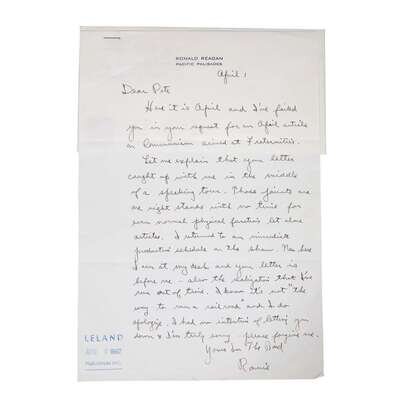 RONALD REAGAN
PACIFIC PALISADES
April 1
Dear Pete
Here it is April and I've failed
you in your request for an April article
on Communism aimed at Fraternities.
Let me explain that your letter
caught up with me in the middle
of a speaking tour. Those jaunts are
one night stands with no time for
even normal physical functions let alone
articles. I returned to an immediate
production schedule on the show. Now here
I am at my desk and your letter is
before me - also the realization that I've
run out of time. I know it's not "the
way to run a railroad" and I do
apologize. I had no intention of letting you
down & I'm truly sorry - please forgive me.
Yours in The Bond
Ronnie
LELAND
PUBLISHERS, INC.